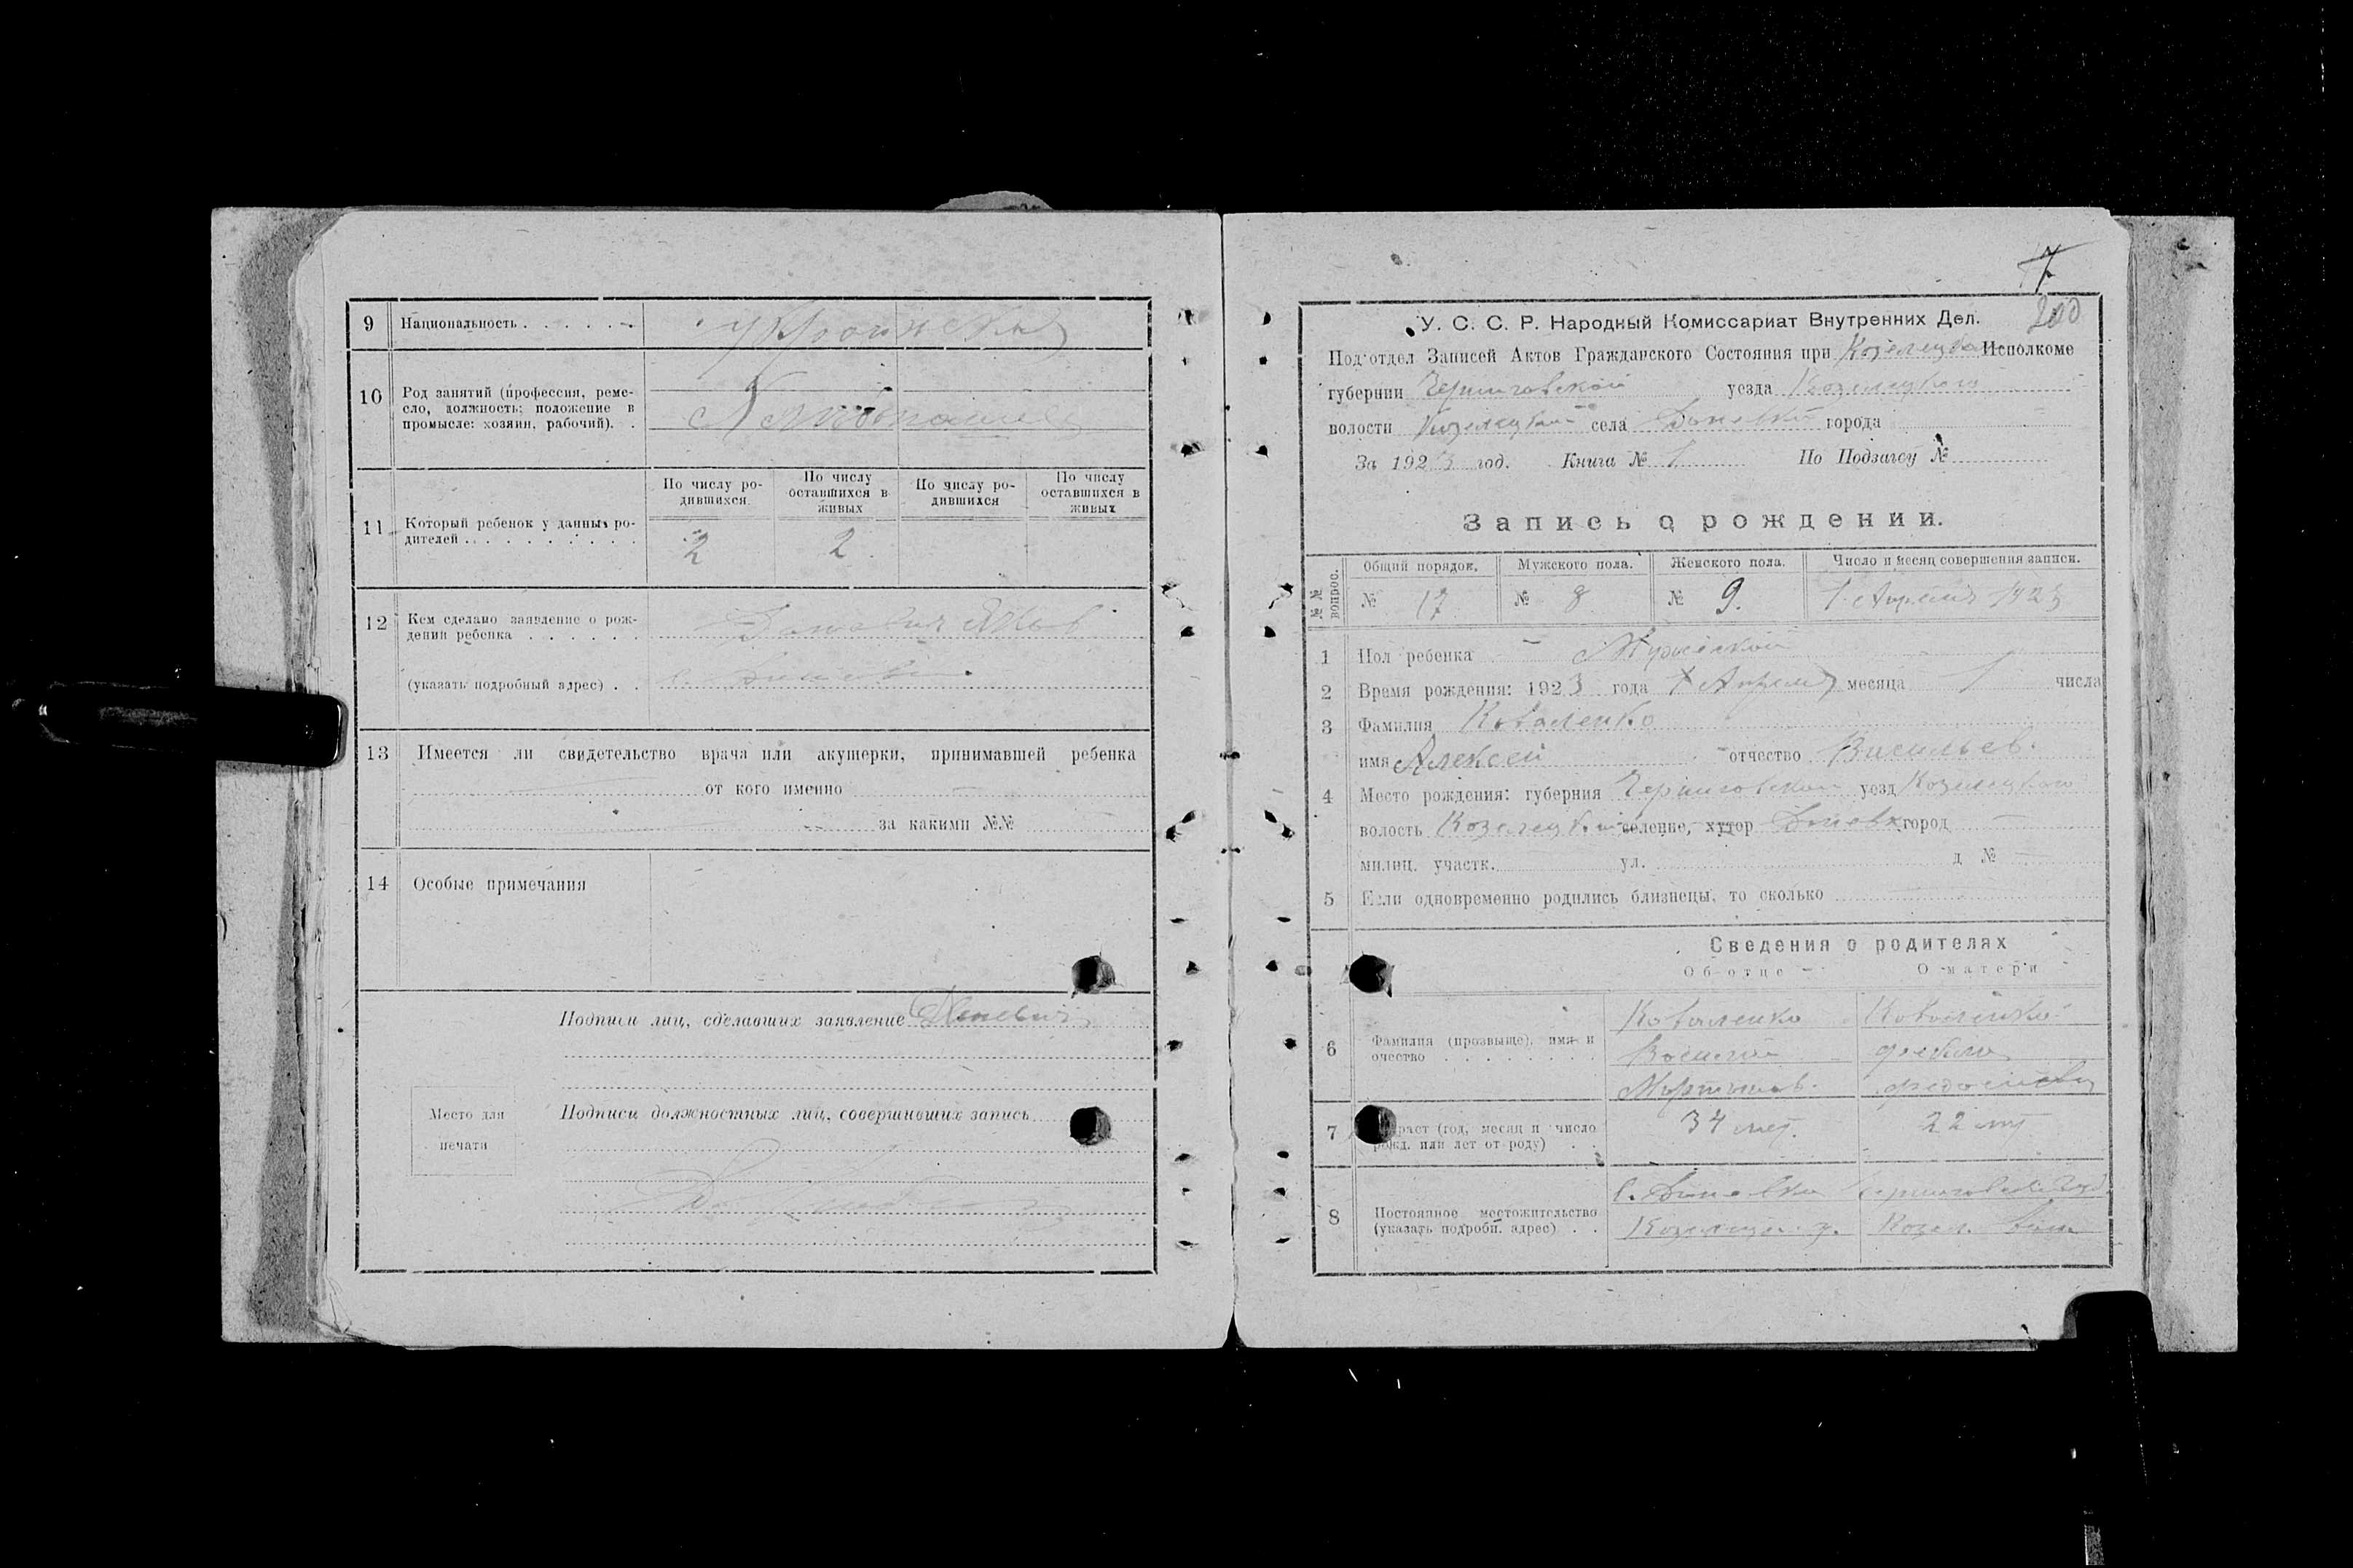 9 Национальность . . . . . . Украинская
10 Род занятий (профессия, реме-
сло, должность; положение в
промысле: хозяин, рабочий). . Хлебопашец
11 Который ребенок у данных ро-
дителей . . . . . . . . . .
По числу ро-
дившихся
По числу
оставшихся в
живых
По числу ро-
дившихся
По числу
оставшихся в
живых
2 2
12 Кем сделано заявление о рож-
дении ребенка . . . . . .
(указать подробный адрес) . . с.
13 Имеется ли свидетельство врача или акушерки, принимавшей ребенка
от кого именно
за какими №№
14 Особые примечания
Подписи лиц, сделавших заявление
Место для
печати
Подписи должностных лиц, совершивших запись
7
200
У. С. С. Р. Народный Комиссариат Внутренних Дел.
Под'отдел Записей Актов Гражданского Состояния при Козелецком Исполкоме
губернии Черниговской уезда Козелецкого
волости Козелецкой села города
За 1923 год. Книга № 1 По Подзагсу №
Запись о рождении.
№ № вопрос.
Общий порядок. Мужского пола. Женского пола. Число и месяц совершения записи.
№ 17 № 8 № 9. 1 Апреля 1923
1 Пол ребенка Мужской
2 Время рождения: 1923 года Апреля месяца 1 числа
3 Фамилия Коваленко
имя Алексей отчество Васильев.
4 Место рождения: губерния Черниговской уезд Козелецкого
волость Козелецкой селение, хутор город
милиц. участк. ул. д №
5 Если одновременно родились близнецы, то сколько
Сведения о родителях
Об отце О матери
6 Фамилия (прозвыще), имя и
очество . . . . . . . .
Коваленко Коваленко
Василий Фекла
Мартинов.
7 Возраст (год, месяц и число
рожд. или лет от роду) . . 34 лет. 22 лет
8 Постоянное местожительство
(указать подробн. адрес) . .
с. Черниговской губ.
Козелецк. у. Козел. вол.